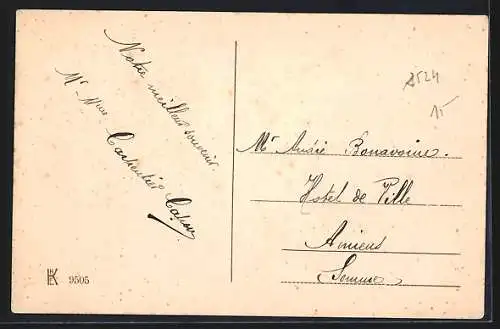 Notre meilleur souvenir.
Mr Mme Carpentier
Mr André Bonavoine.
Hotel de Ville
Amiens
Somme
8524
15
EK 9505